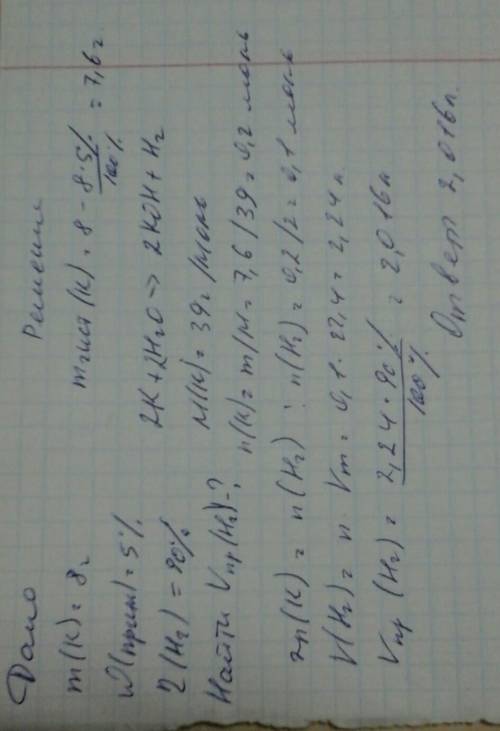 Дано
m(K) = 8г
W(прим) = 5%
η(H₂) = 90%
Найти Vпр(H₂)-?
Решение
mчист(K) = 8 - 8·5%/100% = 7,6г
2K+2H₂O => 2KOH + H₂
M(K) = 39г/моль
n(K) = m/M = 7,6/39 = 0,2 моль
2n(K) = n(H₂) : n(H₂) = 0,2/2 = 0,1 моль
V(H₂) = n · Vm = 0,1 · 22,4 = 2,24л
Vпр (H₂) = 2,24·90%/100% = 2,016л
Ответ 2,016л.